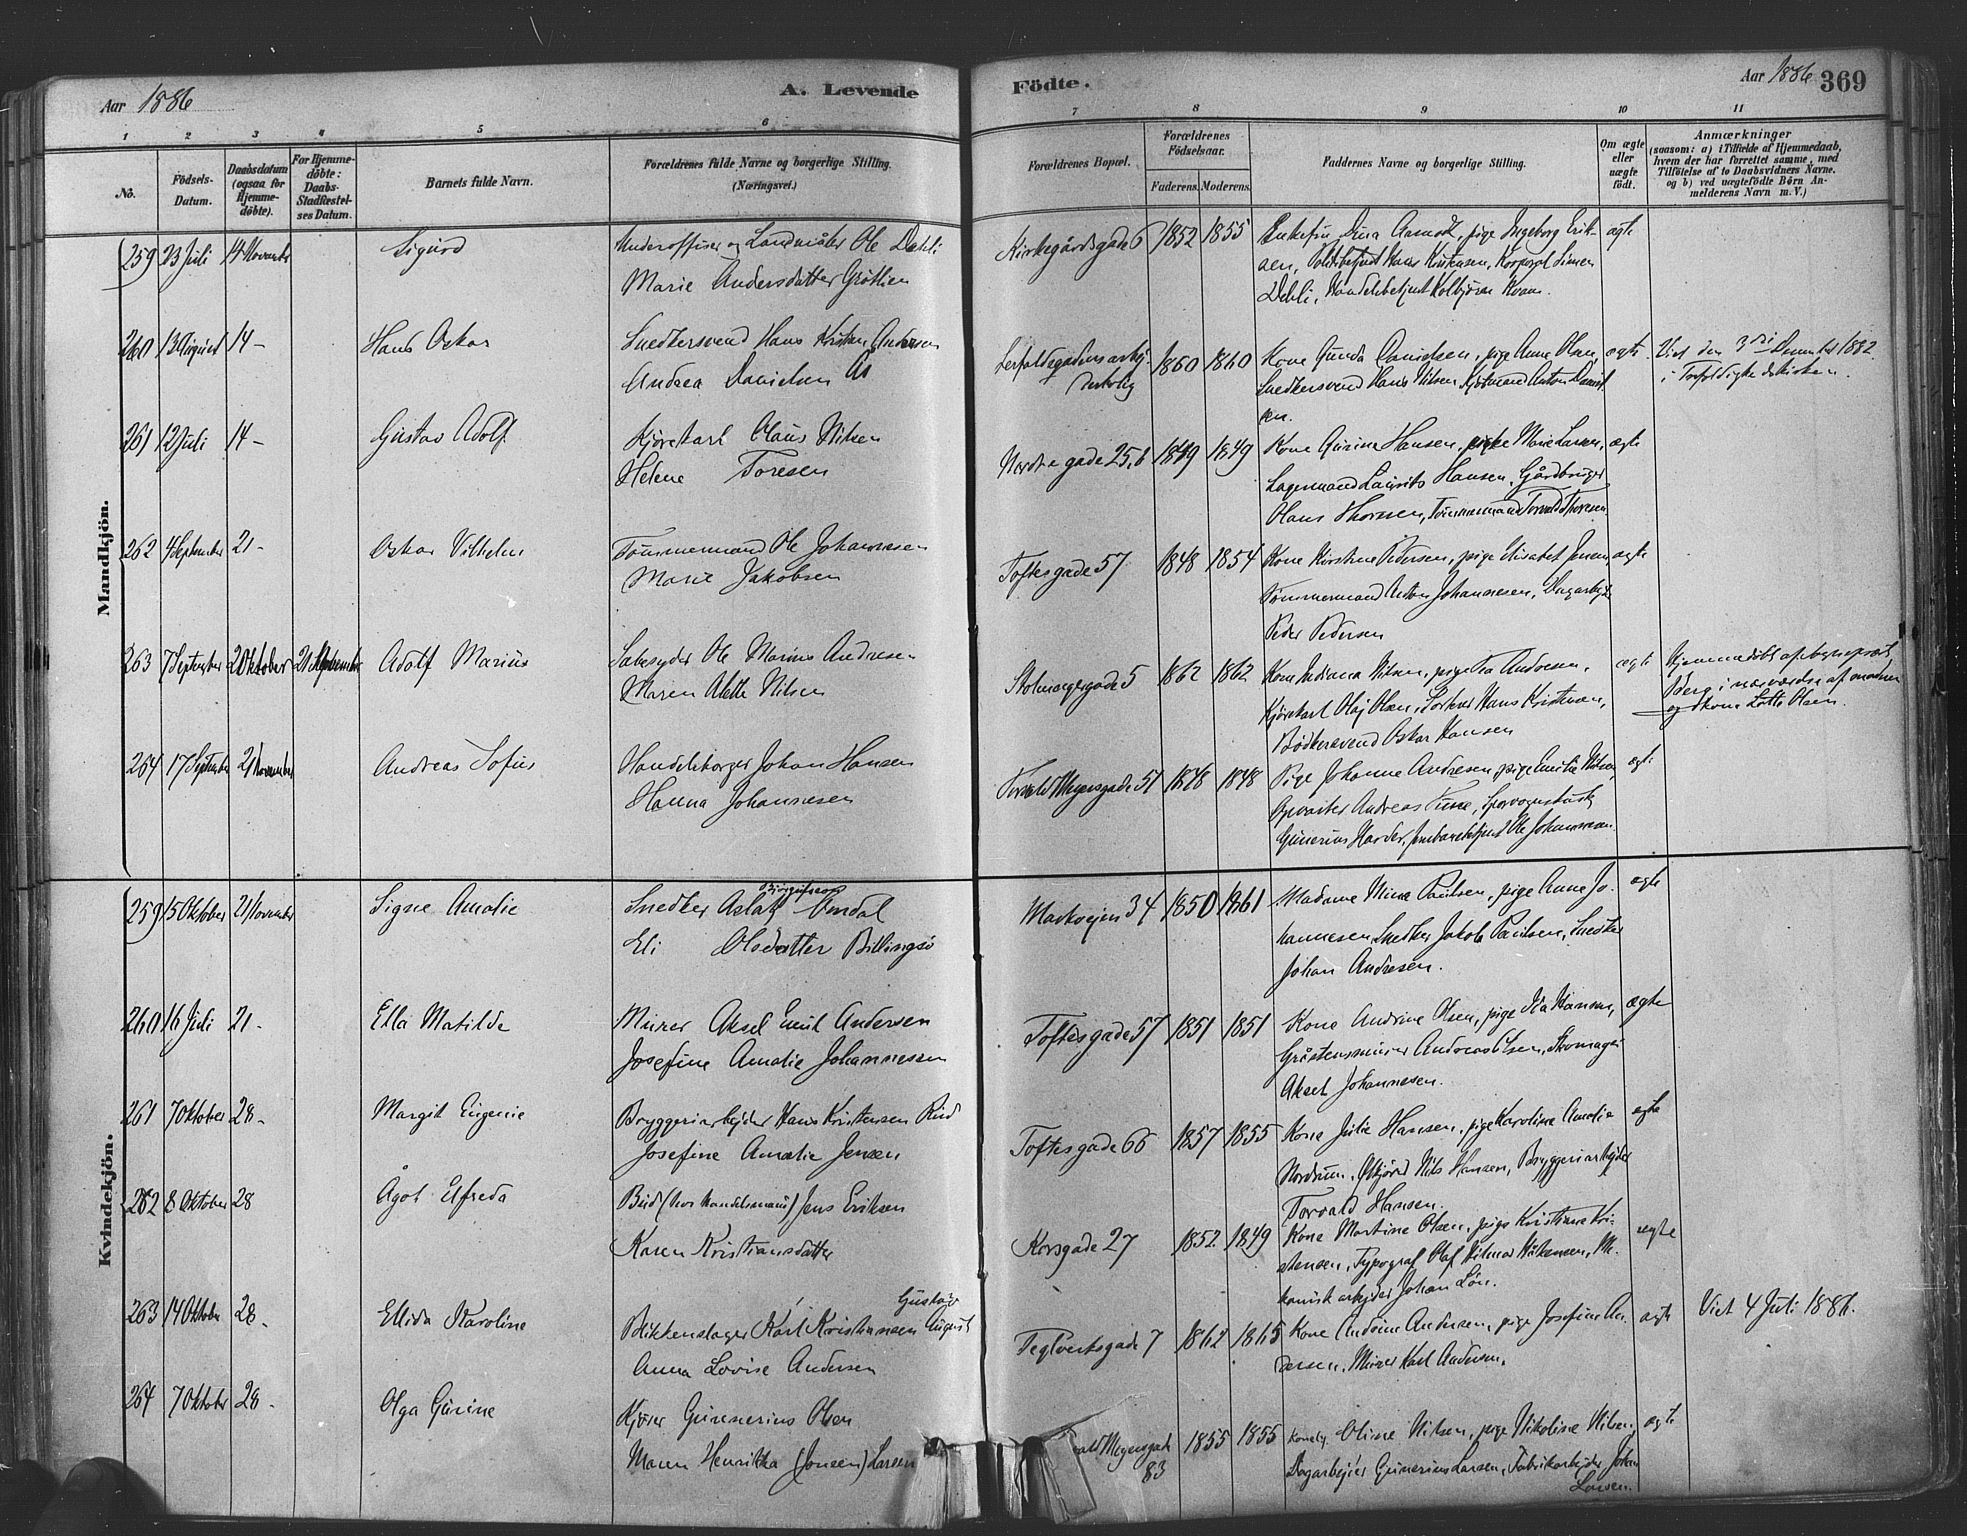 Aar 1886 A. Levende
1 2 3 4 5 6
No. Födsels-Datum. Daabsdatum (ogsaa for Hjemme-döbte). For Hjemme-döbte: Daabs-Stadfæstel-ses Datum. Barnets fulde Navn. Forældrenes fulde Navne og borgerlige Stilling. (Næringsvei.)
Mandkjön.
259 23 Juli 14 November Sigurd Underofficer og Landmåler Ole Dehli
Marie Andersdatter Gröttlien
260 13 August 14 - Hans Oskar Snedkersvend Hans Kristian Andersen
Andrea Danielsen
261 12 Juli 14 - Gustav Adolf Kjörekarl Olaus Nilsen
Helene Toresen
262 4 September 21 - Oskar Vilhelm Tömmermand Ole Johannesen
Marie Jakobsen
263 7 September 2 Oktober 21 November Adolf Marius Ole Marius Andresen
Maren Alette Nilsen
264 17 September 21 November Andreas Sofus Handelsborger Johan Hansen
Hanna Johannesen
Kvindekjön.
259 15 Oktober 21 November Signe Amalie Snedker Aslak Omdal
Eli Olsdatter Billingsö
260 16 Juli 21 - Ella Matilde Murer Aksel Emil Andersen
Josefine Amalie Johannessen
261 7 Oktober 28 - Margit Eugenie Bryggeriarbejder Hans Kristensen Rud
Josefine Amalie Jensen
262 8 Oktober 28 Ågot Elfreda Bud (hos Handelsmand) Jens Eriksen
Karen Kristiansdatter
263 14 Oktober 28 - Ellida Karoline Blikkenslager Karl Kristiansen Gustav August
Anna Lovise Andersen
264 7 Oktober 28 - Olga Gurine Kjörer Gunnerius Olsen
Maren Henrikka (Jonsen) Larsen
Födte. Aar 1886 369
7 8 9 10 11
Forældrenes Bopæl. Forældrenes Födselsaar. Faderens. Moderens. Faddernes Navne og borgerlige Stilling. Om ægte eller uægte födt. Anmærkninger
(saasom: a) i Tilfælde af Hjemmedaab, hvem der har forrettet samme, med Tilföielse af to Daabsvidners Navne. og b) ved uægtefödte Börn Anmelderens Navn m. V.)
Kirkegårdsgade 6 1852 1855 Enkefru Dina Aamodt, pige Ingeborg Erik- ægte
sen, Politibetjent Hans Kristensen, Korporal Simen
Dehli, Handelsbetjent Kolbjörn Kvam.
1860 1860 Kone Gunda Danielsen, pige Anne Olsen, ægte Viet den 3die Desember 1882
Snedkersvend Hans Nilsen, Anton Daniel i Trefoldighedskirken.
sen.
Nordregade 25,b 1849 1849 Kone Gurine Hansen, pige Marie Larsen, ægte
Lagermand Laurits Hansen, Gårdbruger
Olaus Thoresen, Tömmermand Torvald Thoresen
Toftesgade 57 1848 1854 Kone Kirstine Pedersen, pige Elisabet Jensen, ægte
Tömmermand Anton Johannesen, Dagarbejder
Peder Pedersen
Stolmagergade 5 1862 1862 Kone Indiana Nilsen, pige Pia Andresen, ægte Hjemmedöbt af
Kjörekarl Olaj Olsen, Hans Kristensen, Berg i nærværelse af moderen
Bödkersvend Oskar Hansen og kone Lotte Olsen.
Torvald Meyersgade 51 1848 1848 Pige Johanne Andresen, pige Emilie Nilsen, ægte
Opvarter Andreas Sporvognskusk
Gunerius Harder, Jernbanebetjent Ole Johannesen
Markvejen 34 1850 1861 Madame Mina Paulsen, pige Anne Jo- ægte
hannesen, Snedker Jakob Paulsen, Snedker
Johan Andresen.
Toftesgade 57 1851 1851 Kone Andrine Olsen, pige Ida Hansen, ægte
Gråstensmurer Andreas Olsen, Skomager
Aksel Johannesen.
Toftesgade 66 1857 1855 Kone Julie Hansen, pige Karoline Amalie ægte
Nordrum, Nils Hansen, Bryggeriarbejder
Torvald Hansen.
Korsgade 27 1852 1849 Kone Martine Olsen, pige Kristiane Kri- ægte
stensen, Typograf Olaf Hilmar Håkensen, Me-
kanisk arbejder Johan Lön.
Teglverksgade 7 1862 1865 Kone Andrine Andersen, pige Josefine An- ægte Viet 4 Juli 1886.
dersen, Murer Karl Andersen.
ald Meyersgade 83 1855 1855 Kone Oline Nilsen, pige Nikoline Nilsen, ægte
Dagarbejder Gunerius Larsen, Fabrikarbejder Johan
Larsen.